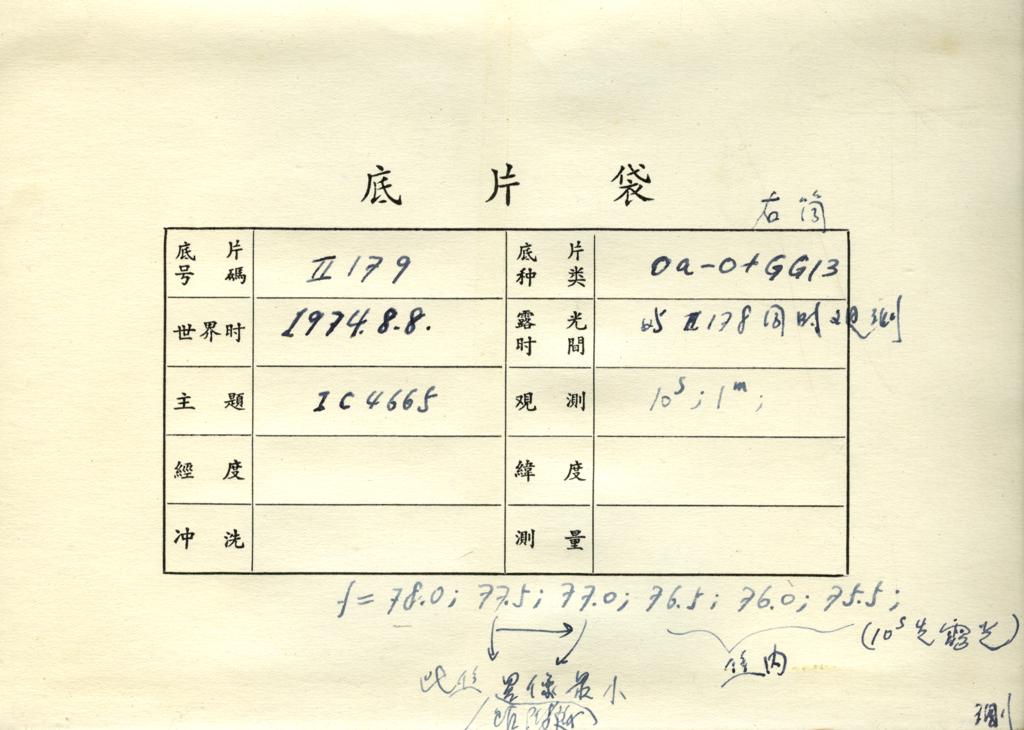 底片袋
右筒
底片号碼 II 179 底片种类 Oa-O+GG13
世界时 1974.8.8. 露光时間 与 II 178 同时观测
主题 IC 4665 观测 10s; 1m;
經度 緯度
冲洗 測量
f = 78.0; 77.5; 77.0; 76.5; 76.0; 75.5;
(10s先露光)
内
星像最小
测